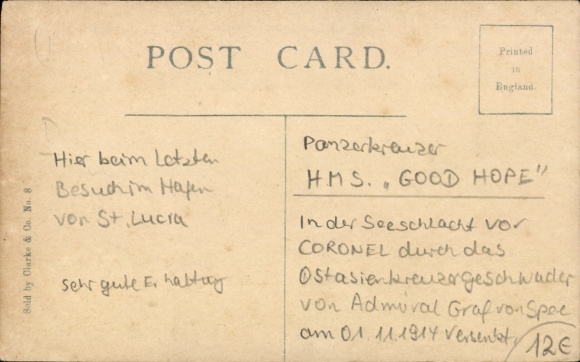 POST CARD.
Printed
in
England.
Hier beim Letzten
Besuch im Hafen
von St. Lucia
sehr gute Erhaltung
Sold by Clarke & Co. No. 8
Panzerkreuzer
HMS. „GOOD HOPE"
In der Seeschlacht vor
CORONEL durch das
Ostasienkreuzergeschwader
von Admiral Graf von Spee
am 01.11.1914 versenkt.
12€